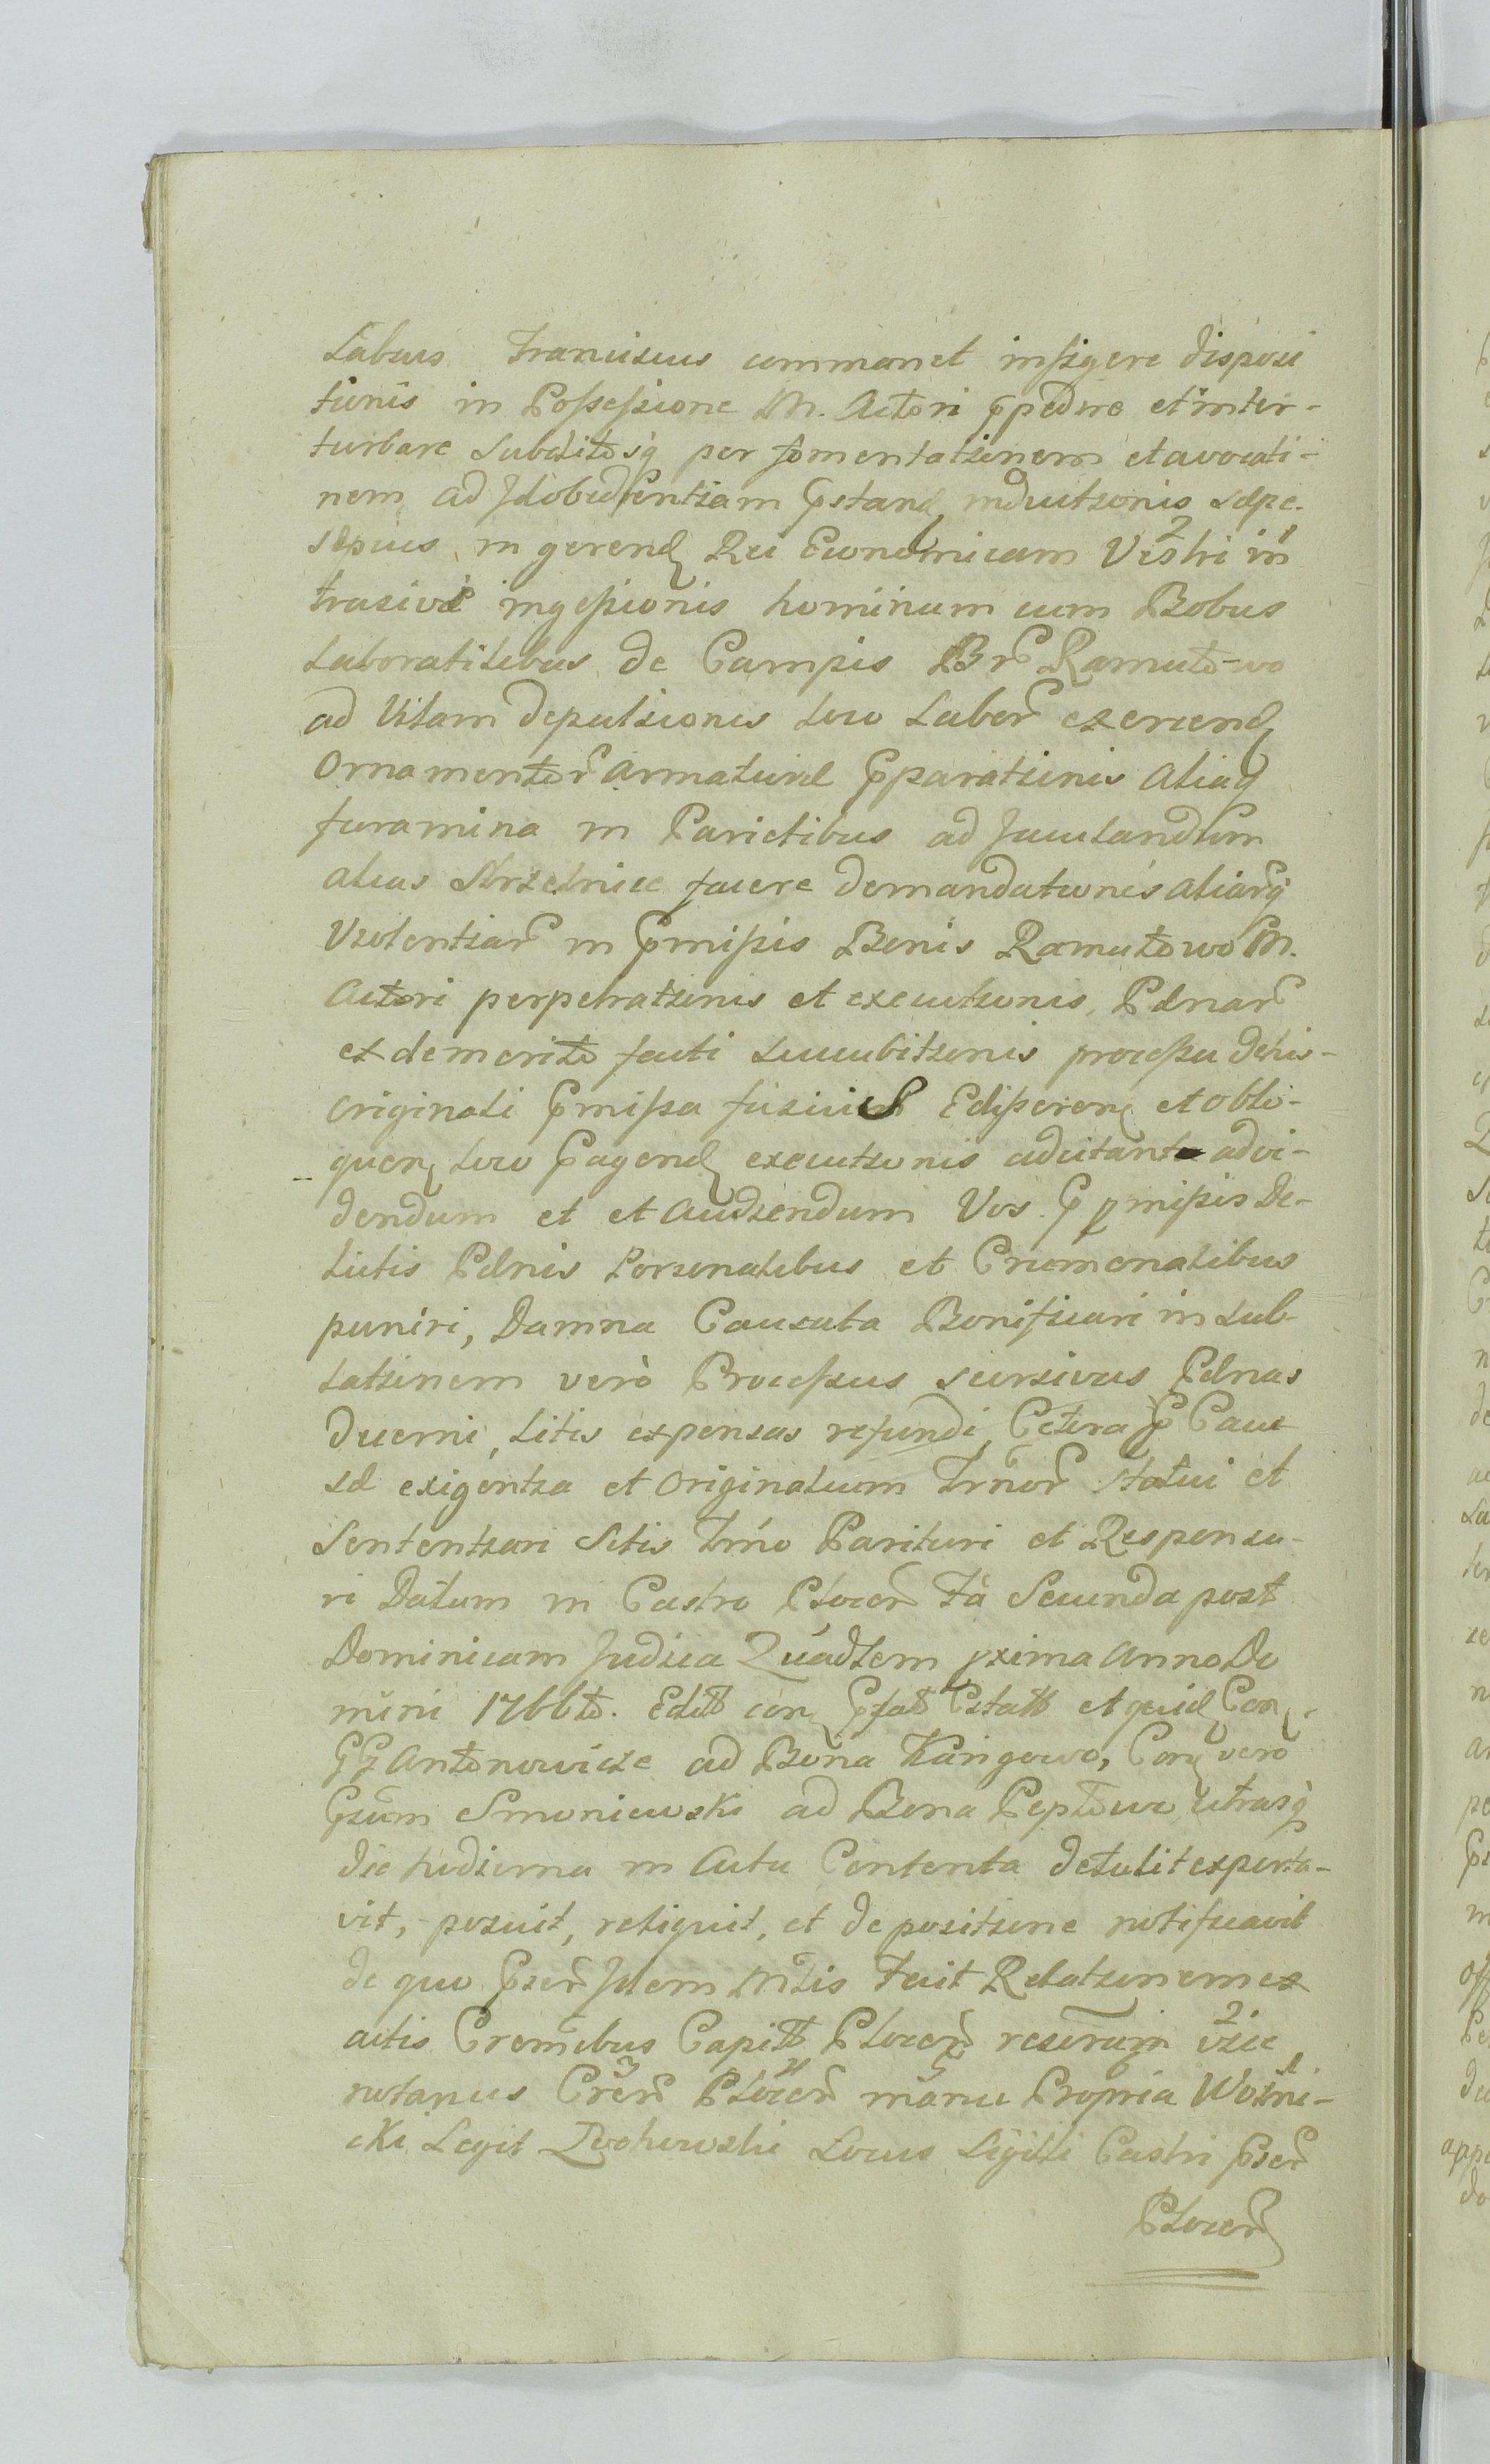 Labens Franciscus commanet insigere disposi
tionis in Possessione M. Actori ꝑpedire et inter-
turbare Subditosq́ per fomentationem et avocati-
nem ad Idobedientiam ꝑstand inductionis sepe-
sepius in gerend Rei Economicam Vestri in
trasivé ingessionis hominum cum Bobus
Laboratilibus de Campis Br Ramutowo
ad Vilam depulsionis loco Labor exercend
Ornamentor Armaturæ ꝑparationis Aliaq
foramina in Parietibus ad Jaculandum
alias Strzelnice facere demandationis aliarq́
Violentiar in ꝑmissis Bonis Ramutowo M.
Actori perpetrationis et executionis, Pænar
ex demerito facti succubitionis processu de his-
originali ꝑmissa fusius Edisseren et oblo-
quen loco ꝑagend executionis adcitant advi-
dendum et et Audiendum Vos ꝑ ꝑmissis De-
lictis Pænis Personalibus et Criemonalibus
puniri, Damna Causata Bonificari in sub-
lationem verò Processus scursivas Pænas
decerni, Litis expensas refundi, Cetera ꝑ Cau
sæ exigentia et Originalium Trnor Statui et
Sententiari Sitis Trno Parituri et Responsu-
ri Datum in Castro Plocen Fa Secunda post
Dominicam Judica Quadlem pxima Anno Do
mini 1766to. Edit con ꝑfat Citatt et quid Con
GG Antonowicze ad Bona Kàngowo, Con vero
Gsum Smoniewski ad Bona Peptowo utrasq́
die hodierna in Actu Contenta detulit exporta-
vit, posuit, reliquit, et depositione notificavit
de quo ꝑsen Idem Mlis Fecit Relationem ex
actis Cremebus Capitt Plocen reserum vice
notarius Cren Plocen manu Propria Wozni-
cki Legit Zochowski Locus Sigilli Castri ꝑsen
Plocen